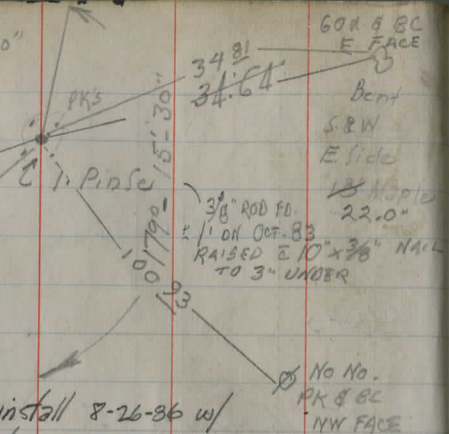 60d & BC
E FACE
34 81
34.64
PK'S
Bent
S.&W
E. Side
Maple
22.0"
179°-15'-30"
3/8" ROD FD.
± 1' ON OCT-83
RAISED c̄ 10" x 3/8" NAIL
TO 3" UNDER
100 23
NO NO.
PK & BC
NW FACE
install 8-26-86 w/